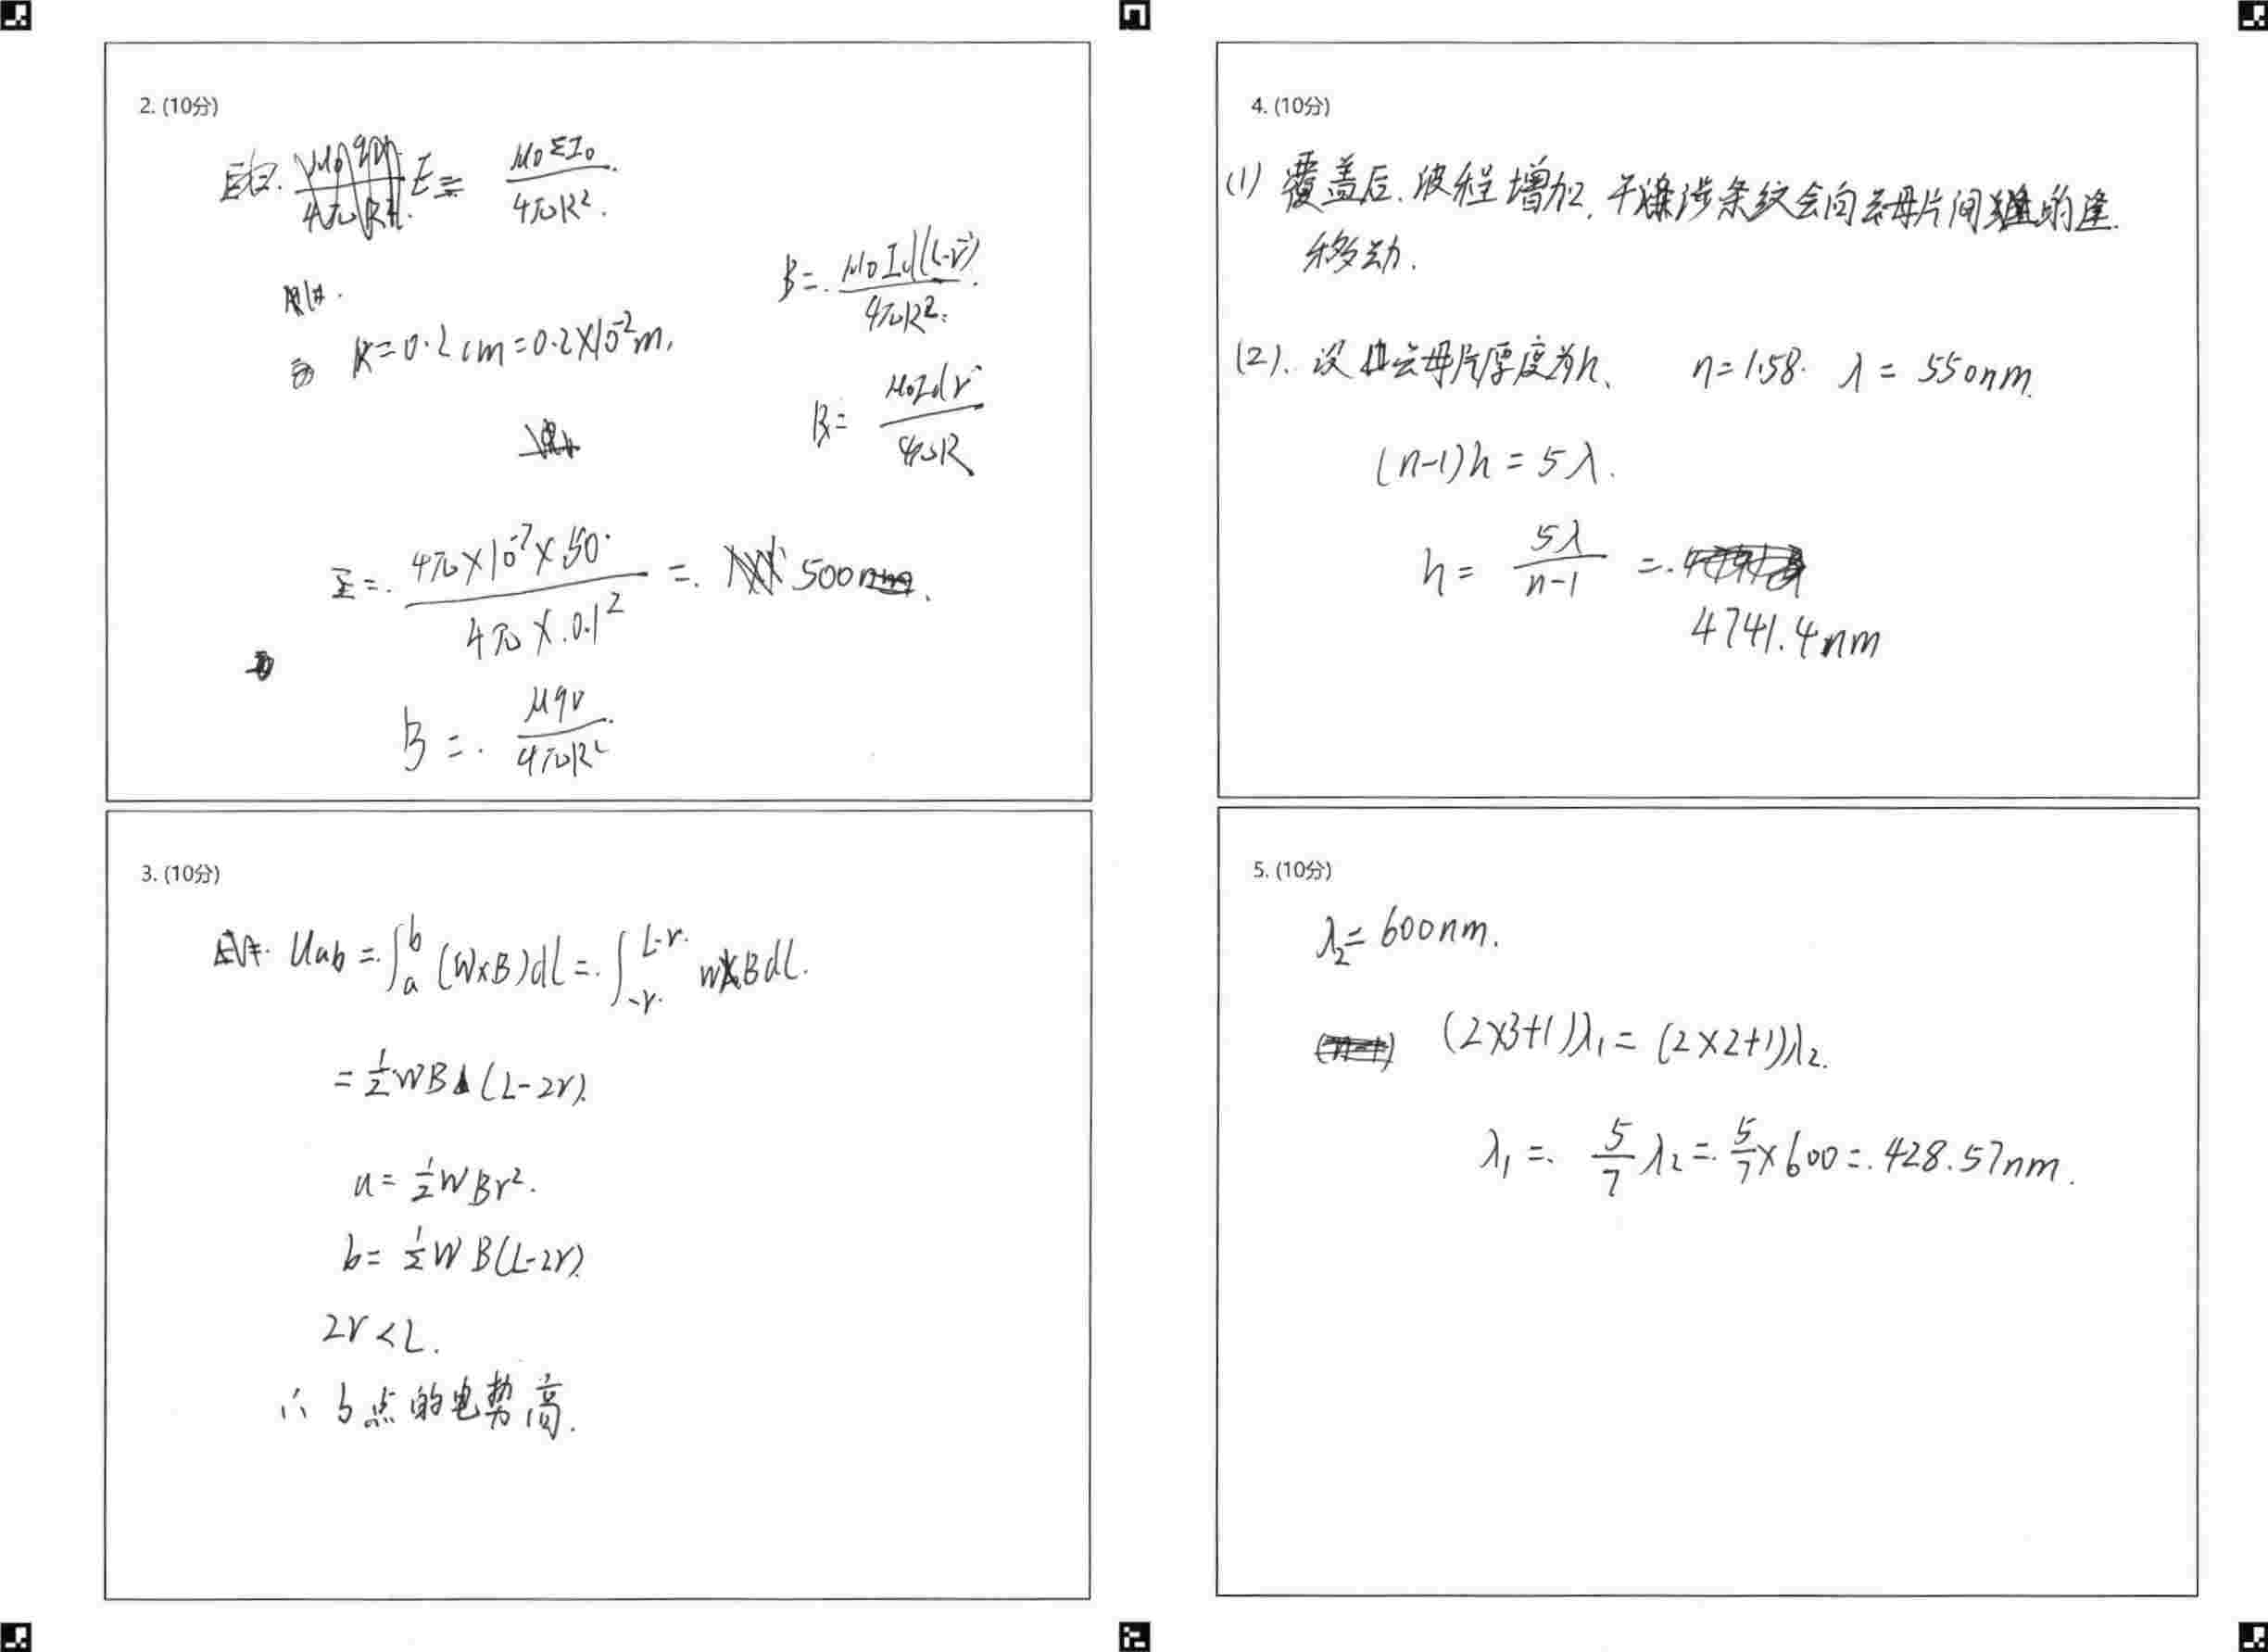 2. (10分)
E = μ₀ΣI₀ / 4πR².
B = μ₀Idl(L-r) / 4πR².
R = 0.2cm = 0.2×10⁻²m,
B = μ₀Idr / 4πR
= 4π×10⁻⁷×50 / 4π×0.1² = 500
B = μqv / 4πR²
3. (10分)
Uab = ∫ₐᵇ (W×B)dl = ∫₋ᵣᴸ⁻ʳ WBdl.
= ½WB(L-2r).
a = ½WBr².
b = ½WB(L-2r).
2r < L.
∴ b点的电势高.
4. (10分)
(1) 覆盖后. 波程增加, 干涉条纹会向云母片间的逢.
移动.
(2). 设云母片厚度为h、 n=1.58. λ = 550nm.
(n-1)h = 5λ.
h = 5λ / n-1 =
4741.4nm
5. (10分)
λ₂ = 600nm.
(2×3+1)λ₁ = (2×2+1)λ₂.
λ₁ = 5/7 λ₂ = 5/7×600 = 428.57nm.